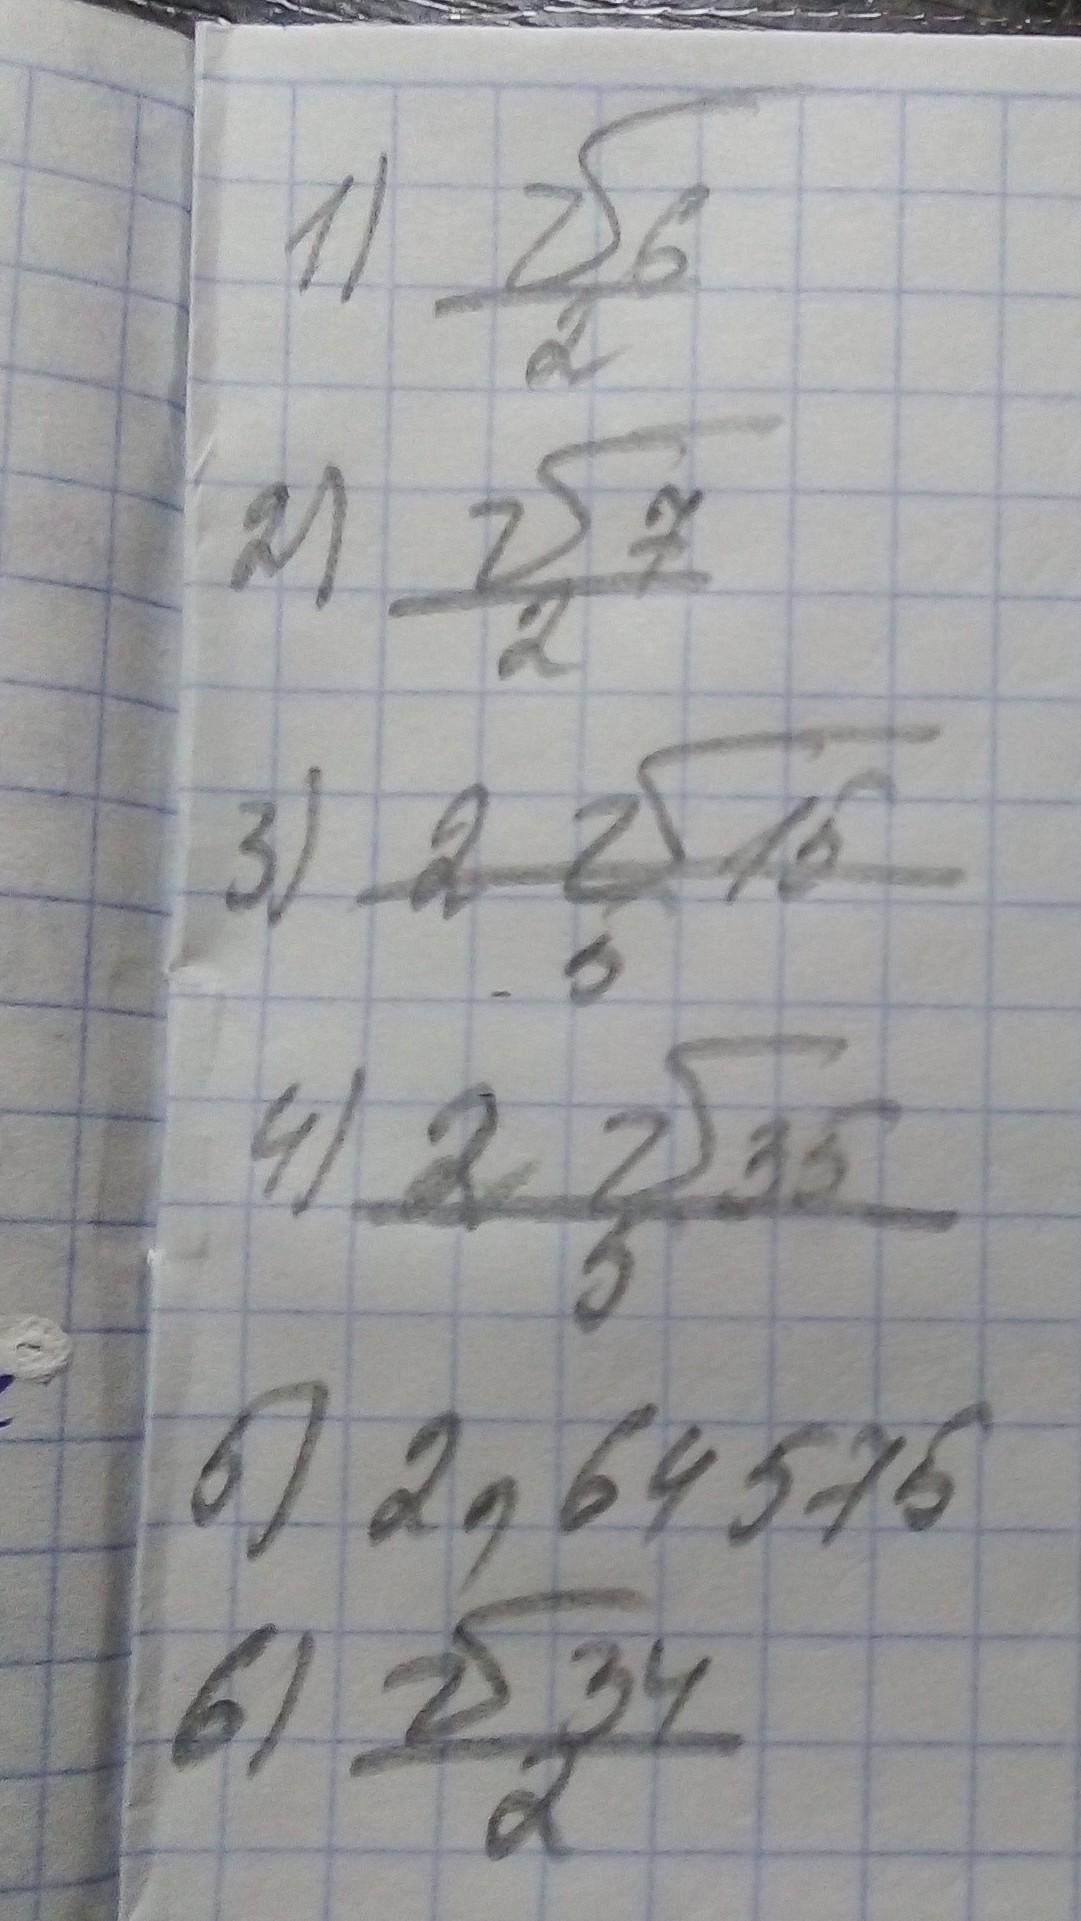 1) √6 / 2
2) √7 / 2
3) 2 √15 / 5
4) 2 √35 / 5
5) 2,64575
6) √34 / 2